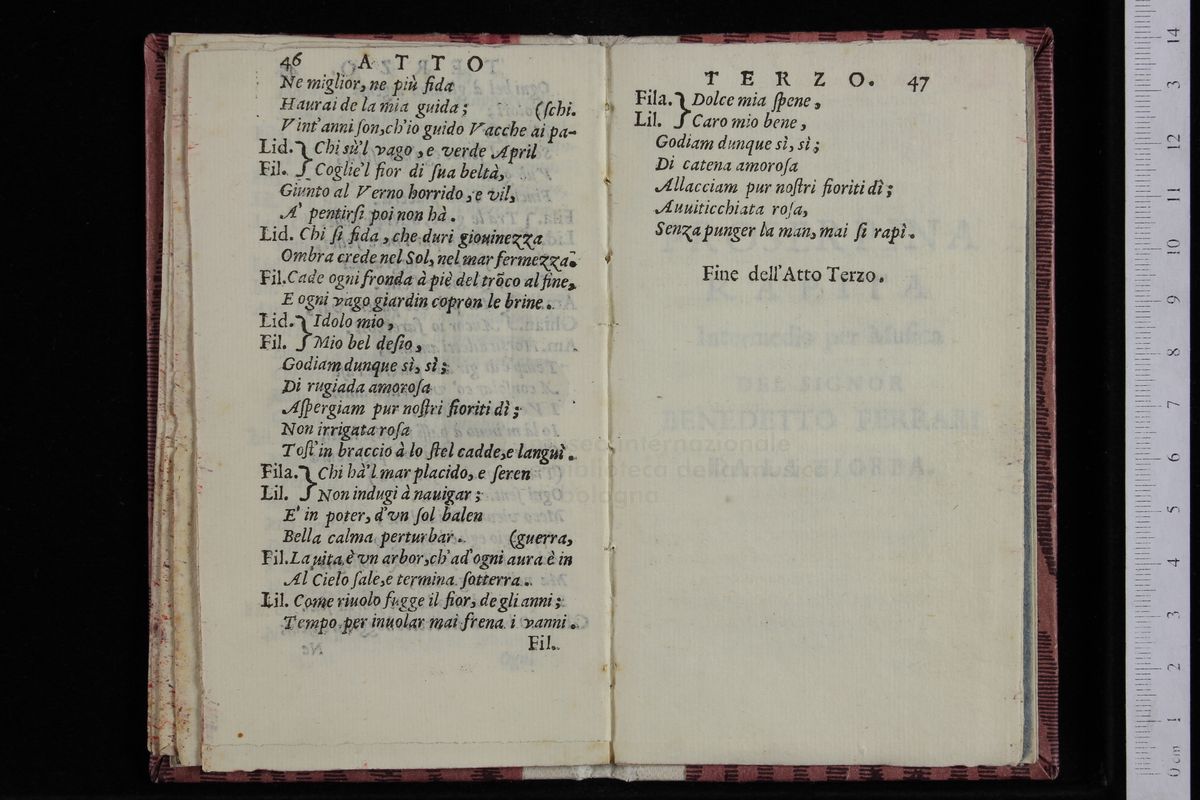 46 ATTO
Ne miglior, ne più fida
Haurai de la mia guida; (ſchi.
Vint'anni ſon,ch'io guido Vacche ai pa-
Lid. } Chi sù'l vago, e verde April
Fil. } Coglie'l fior di ſua beltà,
Giunto al Verno horrido, e vil,
A' pentirſi poi non hà.
Lid. Chi ſi fida, che duri giouinezza
Ombra crede nel Sol, nel mar fermezza.
Fil. Cade ogni fronda à piè del trõco al fine,
E ogni vago giardin copron le brine.
Lid. } Idolo mio,
Fil. } Mio bel deſio,
Godiam dunque sì, sì;
Di rugiada amoroſa
Aſpergiam pur noſtri fioriti dì;
Non irrigata roſa
Toſt'in braccio à lo ſtel cadde, e languì.
Fila. } Chi hà'l mar placido, e ſeren
Lil. } Non indugi à nauigar;
E' in poter, d'vn ſol balen
Bella calma perturbar. (guerra,
Fil. La uita è vn arbor,ch'ad'ogni aura è in
Al Cielo ſale, e termina ſotterra.
Lil. Come riuolo fugge il fior, de gli anni;
Tempo per inuolar mai frena i vanni.
Fil.
TERZO. 47
Fila. } Dolce mia ſpene,
Lil. } Caro mio bene,
Godiam dunque sì, sì;
Di catena amoroſa
Allacciam pur noſtri fioriti dì;
Auuiticchiata roſa,
Senza punger la man, mai ſi rapì.
Fine dell'Atto Terzo.
museo internazionale
e biblioteca della musica
bologna
0 cm 1 2 3 4 5 6 7 8 9 10 11 12 13 14